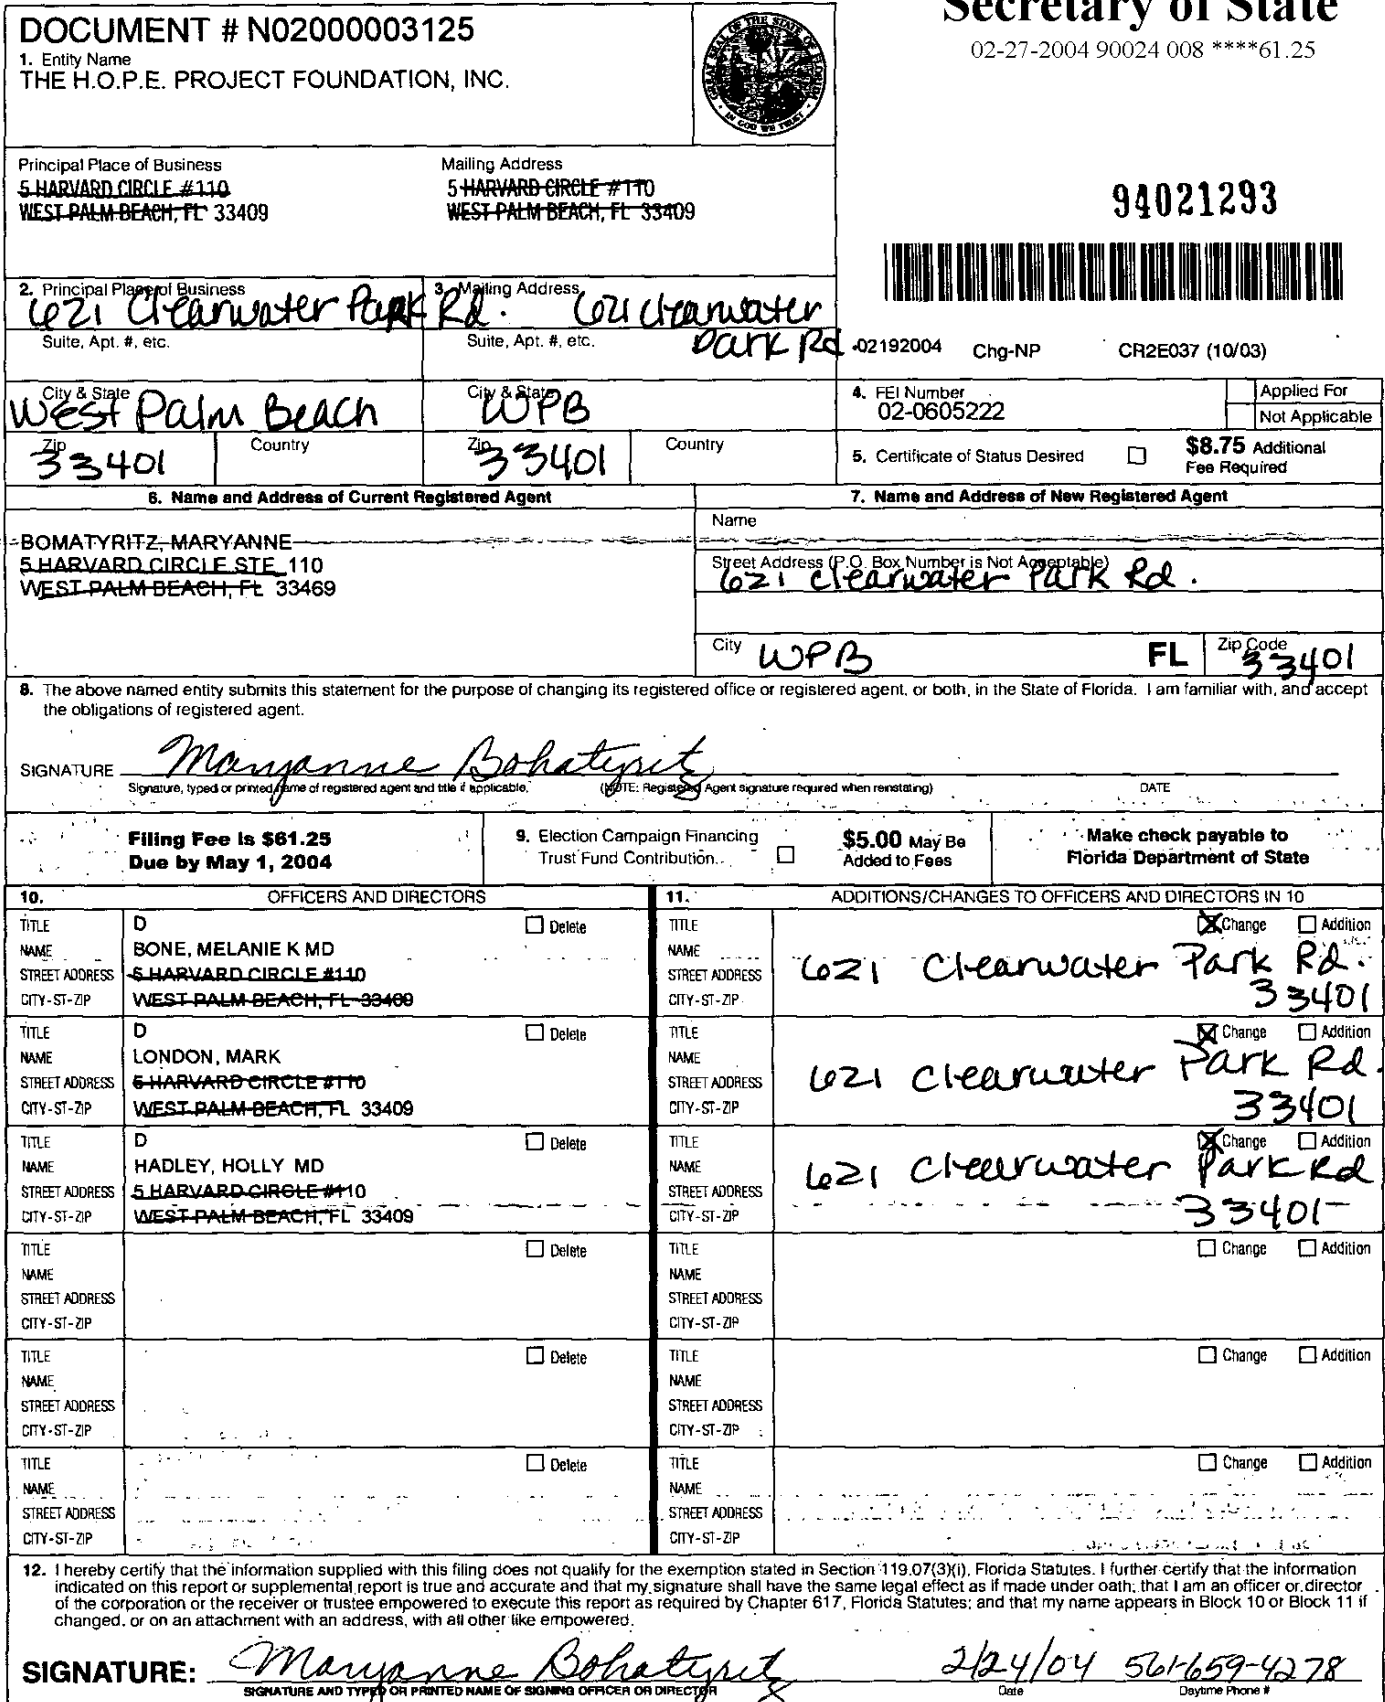 Secretary of State
02-27-2004 90024 008 ****61.25
DOCUMENT # N02000003125
1. Entity Name
THE H.O.P.E. PROJECT FOUNDATION, INC.
GREAT SEAL OF THE STATE OF FLORIDA
IN GOD WE TRUST
Principal Place of Business
5 HARVARD CIRCLE #110
WEST PALM BEACH, FL 33409
Mailing Address
5 HARVARD CIRCLE #110
WEST PALM BEACH, FL 33409
94021293
2. Principal Place of Business
621 Clearwater Park Rd.
3. Mailing Address
621 Clearwater
Park Rd
Suite, Apt. #, etc.
Suite, Apt. #, etc.
02192004 Chg-NP CR2E037 (10/03)
City & State
West Palm Beach
City & State
WPB
Zip
33401
Country
Zip
33401
Country
4. FEI Number
02-0605222
Applied For
Not Applicable
5. Certificate of Status Desired
$8.75 Additional
Fee Required
6. Name and Address of Current Registered Agent
BOMATYRITZ, MARYANNE
5 HARVARD CIRCLE STE 110
WEST PALM BEACH, FL 33469
7. Name and Address of New Registered Agent
Name
Street Address (P.O. Box Number is Not Acceptable)
621 Clearwater Park Rd.
City WPB FL Zip Code 33401
8. The above named entity submits this statement for the purpose of changing its registered office or registered agent, or both, in the State of Florida. I am familiar with, and accept
the obligations of registered agent.
SIGNATURE Maryanne Bohatyritz
Signature, typed or printed name of registered agent and title if applicable. (NOTE: Registered Agent signature required when reinstating) DATE
Filing Fee is $61.25
Due by May 1, 2004
9. Election Campaign Financing
Trust Fund Contribution.
$5.00 May Be
Added to Fees
Make check payable to
Florida Department of State
10. OFFICERS AND DIRECTORS
11. ADDITIONS/CHANGES TO OFFICERS AND DIRECTORS IN 10
TITLE D Delete
NAME BONE, MELANIE K MD
STREET ADDRESS 5 HARVARD CIRCLE #110
CITY-ST-ZIP WEST PALM BEACH, FL 33409
TITLE Change Addition
NAME
STREET ADDRESS 621 Clearwater Park Rd.
CITY-ST-ZIP 33401
TITLE D Delete
NAME LONDON, MARK
STREET ADDRESS 5 HARVARD CIRCLE #110
CITY-ST-ZIP WEST PALM BEACH, FL 33409
TITLE Change Addition
NAME
STREET ADDRESS 621 Clearwater Park Rd.
CITY-ST-ZIP 33401
TITLE D Delete
NAME HADLEY, HOLLY MD
STREET ADDRESS 5 HARVARD CIRCLE #110
CITY-ST-ZIP WEST PALM BEACH, FL 33409
TITLE Change Addition
NAME 621 Clearwater Park Rd
STREET ADDRESS
CITY-ST-ZIP 33401
TITLE Delete
NAME
STREET ADDRESS
CITY-ST-ZIP
TITLE Change Addition
NAME
STREET ADDRESS
CITY-ST-ZIP
TITLE Delete
NAME
STREET ADDRESS
CITY-ST-ZIP
TITLE Change Addition
NAME
STREET ADDRESS
CITY-ST-ZIP
TITLE Delete
NAME
STREET ADDRESS
CITY-ST-ZIP
TITLE Change Addition
NAME
STREET ADDRESS
CITY-ST-ZIP
12. I hereby certify that the information supplied with this filing does not qualify for the exemption stated in Section 119.07(3)(i), Florida Statutes. I further certify that the information
indicated on this report or supplemental report is true and accurate and that my signature shall have the same legal effect as if made under oath; that I am an officer or director
of the corporation or the receiver or trustee empowered to execute this report as required by Chapter 617, Florida Statutes; and that my name appears in Block 10 or Block 11 if
changed, or on an attachment with an address, with all other like empowered.
SIGNATURE: Maryanne Bohatyritz 2/24/04 561-659-4278
SIGNATURE AND TYPED OR PRINTED NAME OF SIGNING OFFICER OR DIRECTOR Date Daytime Phone #